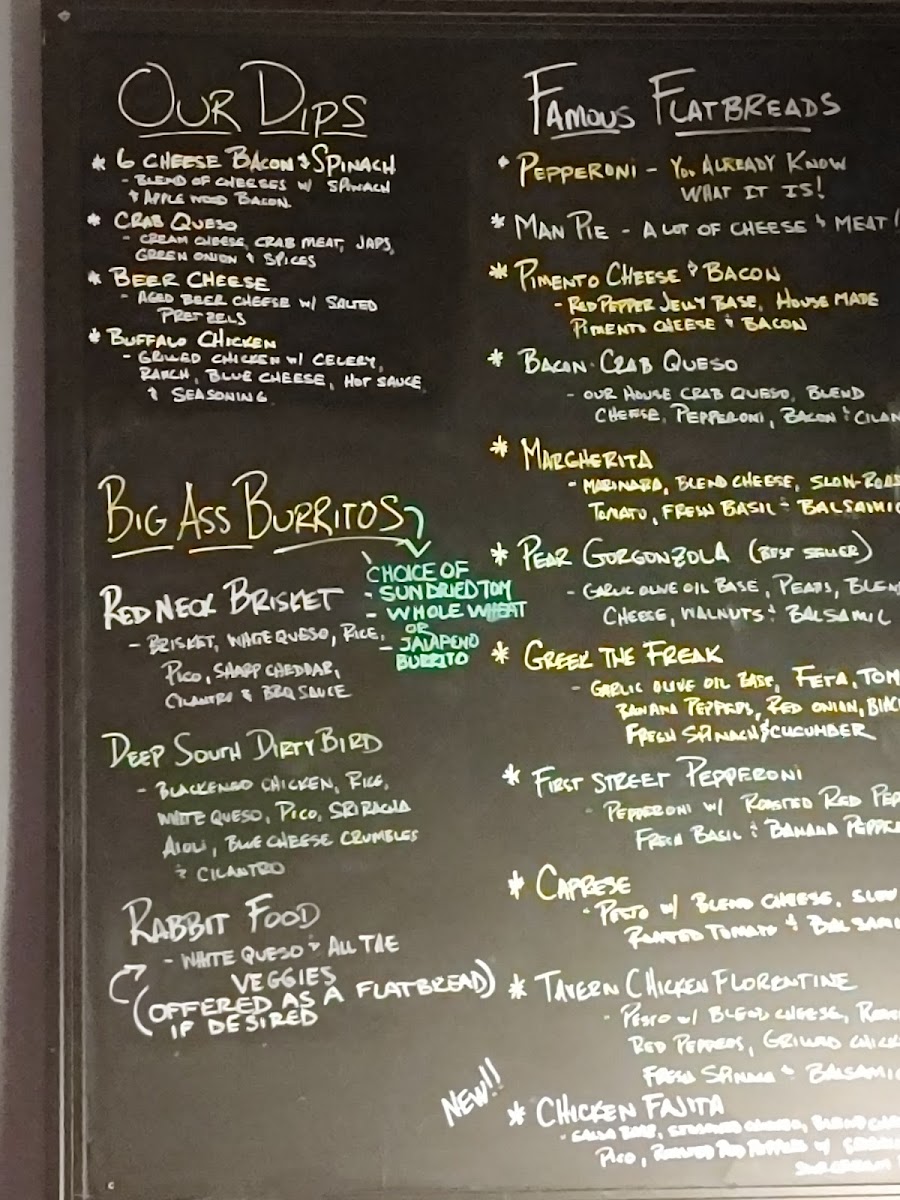 OUR DIPS
* 6 CHEESE BACON & SPINACH
- BLEND OF CHEESES W/ SPINACH
& APPLE WOOD BACON.
* CRAB QUESO
- CREAM CHEESE, CRAB MEAT, JAPS,
GREEN ONION & SPICES
* BEER CHEESE
- AGED BEER CHEESE W/ SALTED
PRETZELS
* BUFFALO CHICKEN
- GRILLED CHICKEN W/ CELERY,
RANCH, BLUE CHEESE, HOT SAUCE
& SEASONING
BIG ASS BURRITOS
CHOICE OF
- SUNDRIED TOM
- WHOLE WHEAT
OR
- JALAPENO
BURRITO
RED NECK BRISKET
- BRISKET, WHITE QUESO, RICE,
PICO, SHARP CHEDDAR,
CILANTRO & BBQ SAUCE
DEEP SOUTH DIRTY BIRD
- BLACKENED CHICKEN, RICE,
WHITE QUESO, PICO, SRIRACHA
AIOLI, BLUE CHEESE CRUMBLES
& CILANTRO
RABBIT FOOD
- WHITE QUESO & ALL THE
VEGGIES
(OFFERED AS A FLATBREAD)
IF DESIRED
FAMOUS FLATBREADS
* PEPPERONI - YOU ALREADY KNOW
WHAT IT IS!
* MAN PIE - A LOT OF CHEESE & MEAT!
* PIMENTO CHEESE & BACON
- RED PEPPER JELLY BASE, HOUSE MADE
PIMENTO CHEESE & BACON
* BACON CRAB QUESO
- OUR HOUSE CRAB QUESO, BLEND
CHEESE, PEPPERONI, BACON & CILAN
* MARGHERITA
- MARINARA, BLEND CHEESE, SLOW-ROAS
TOMATO, FRESH BASIL & BALSAMIC
* PEAR GORGONZOLA (BEST SELLER)
- GARLIC OLIVE OIL BASE, PEARS, BLEN
CHEESE, WALNUTS & BALSAMIC
* GREEK THE FREAK
- GARLIC OLIVE OIL BASE, FETA, TOM
BANANA PEPPERS, RED ONION, BLAC
FRESH SPINACH & CUCUMBER
* FIRST STREET PEPPERONI
- PEPPERONI W/ ROASTED RED PEP
FRESH BASIL & BANANA PEPPER
* CAPRESE
- PESTO W/ BLEND CHEESE, SLOW
ROASTED TOMATO & BALSAMIC
* TAVERN CHICKEN FLORENTINE
- PESTO W/ BLEND CHEESE, ROAS
RED PEPPERS, GRILLED CHICK
FRESH SPINACH & BALSAMIC
NEW!!
* CHICKEN FAJITA
- SALSA BASE, BLEND
PICO, ROASTED RED PEPPERS W/